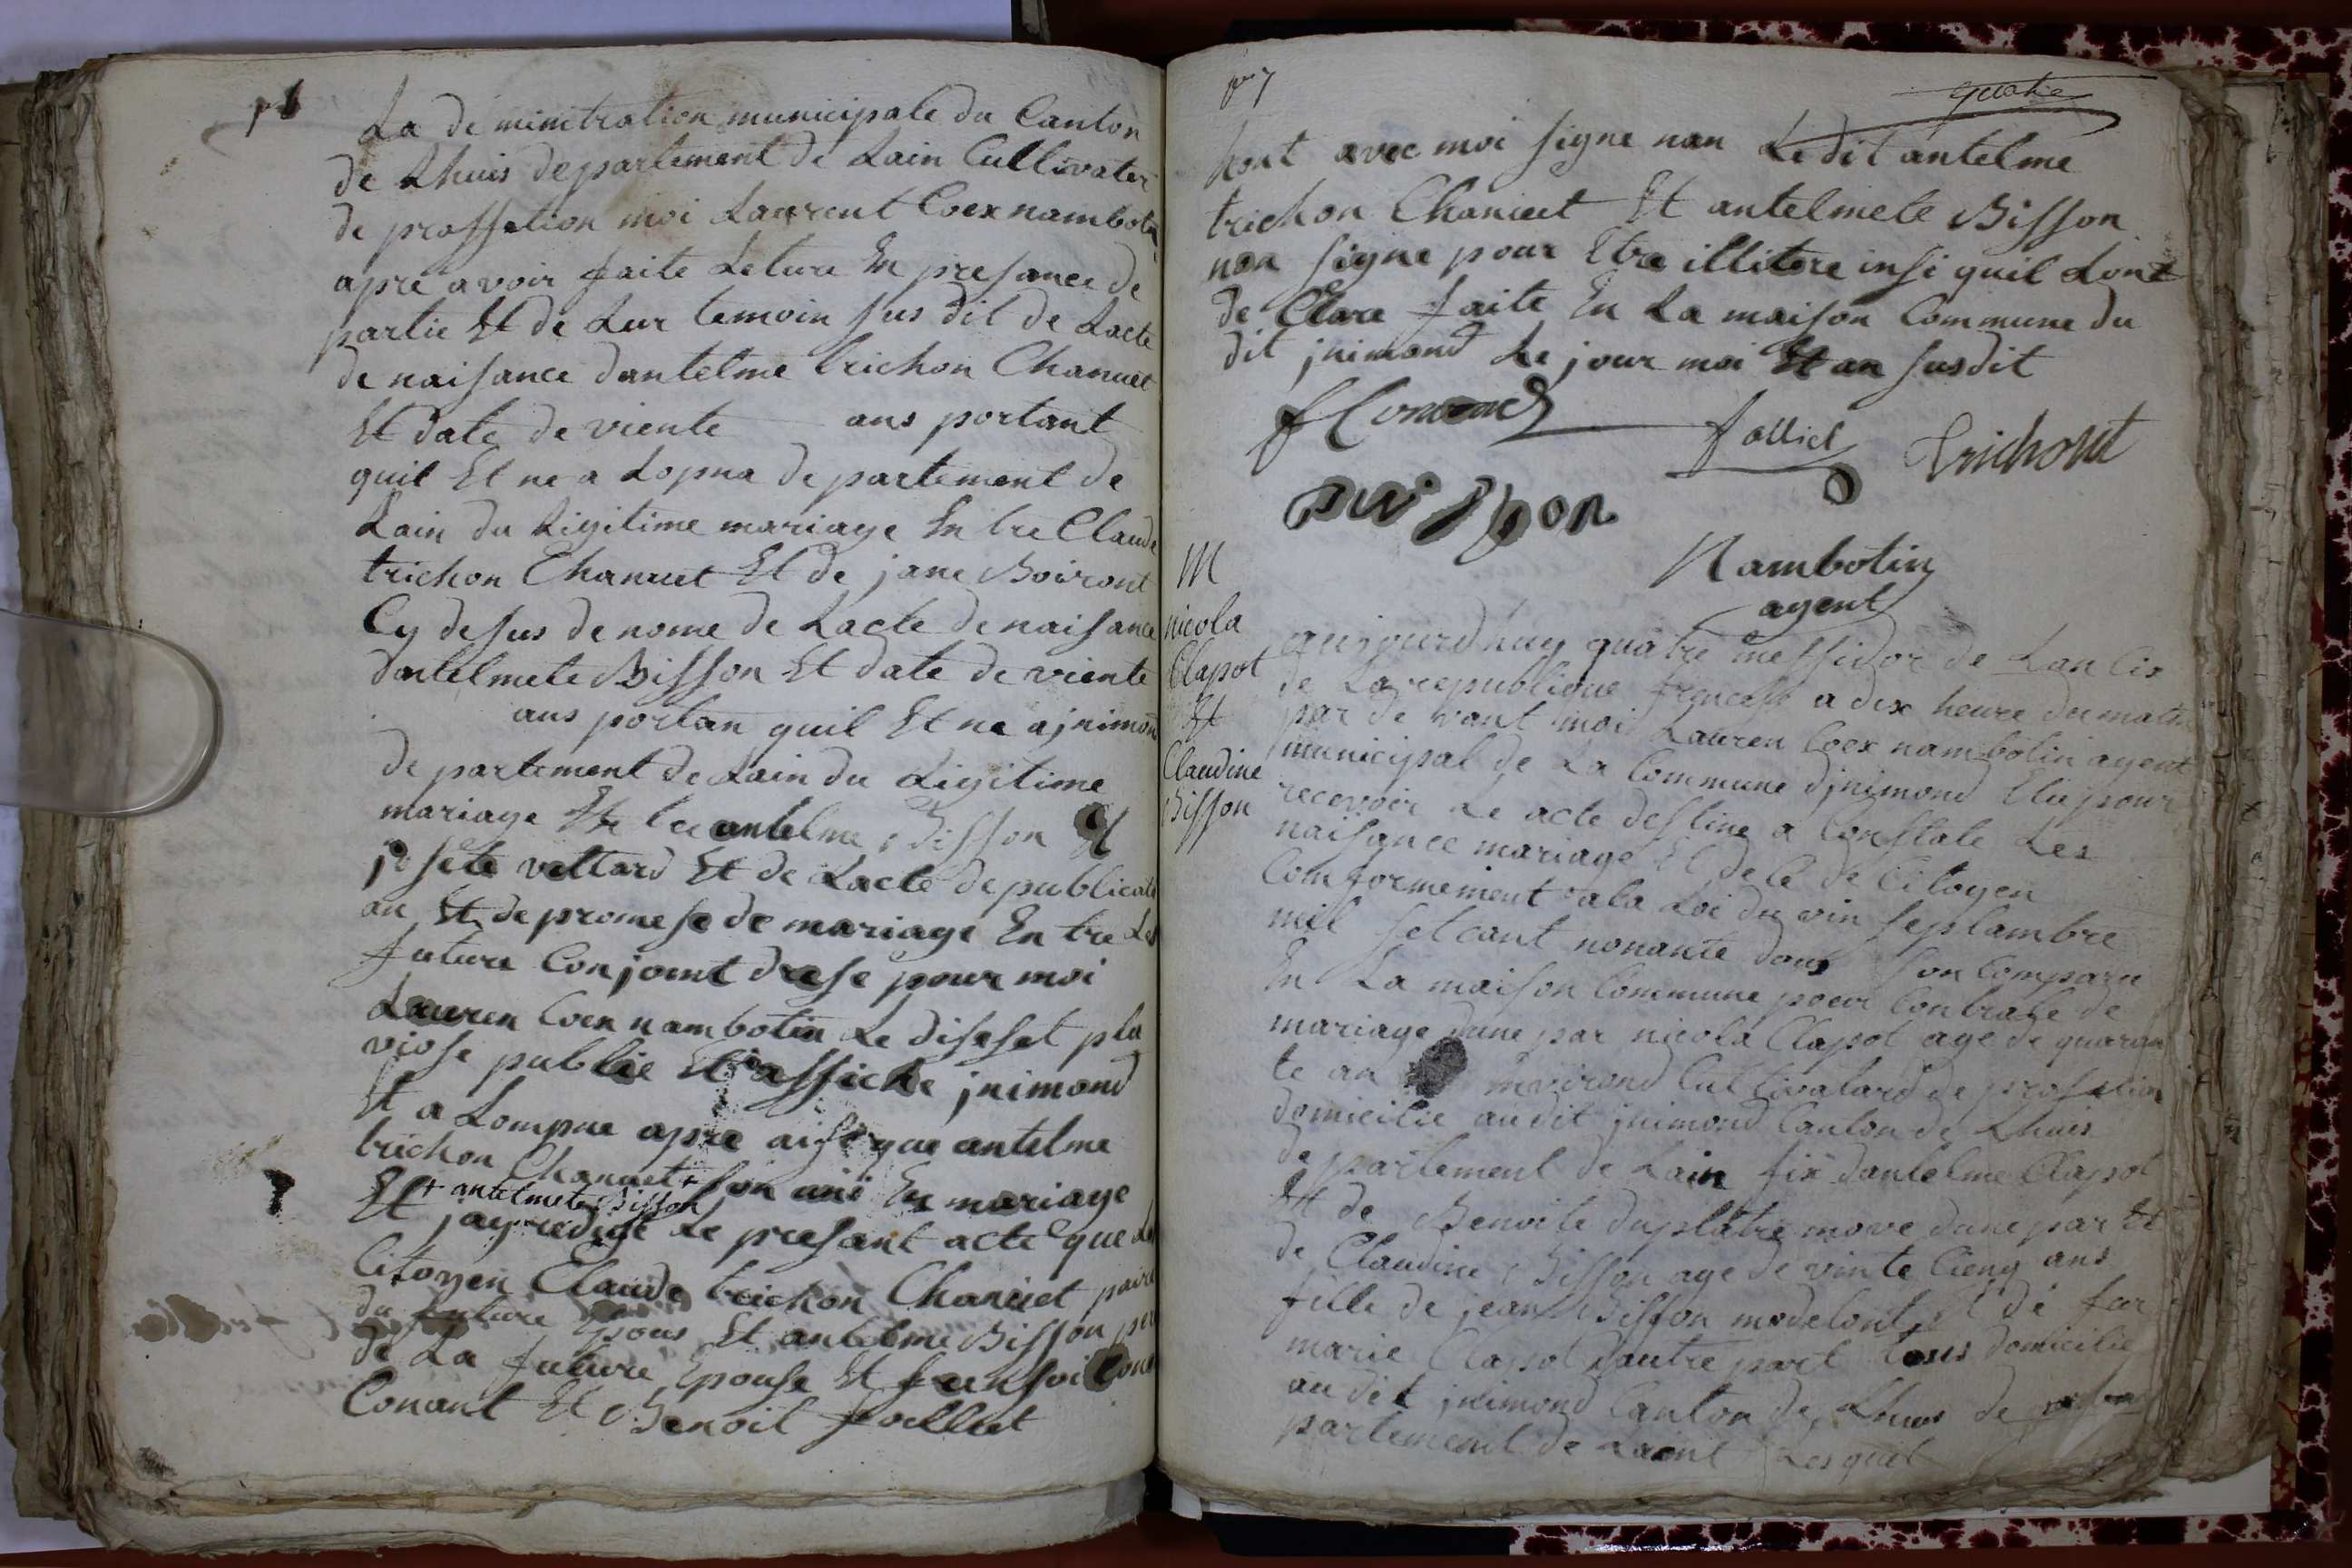 La de minitration municipale du Canton
de Lhuis departement de Lain Cultivater
de proffetion moi Laurent Coex nambotin
apre avoir faite Leture En presance de
partie Et de Lur temoin sus dit de Lacte
de naisance dantelme trichon Chanuet
Et date de viente ans portant
quil Et ne a Lopna departement de
Lain du Ligitime mariage Entre Claude
trichon Chanuet Et de jane Boiront
Cy desus de nome de Lacte de naisance
dantelmete Bisson Et date de viente
ans portan quil Et ne a jnimon
departement de Lain du Ligitime
mariage Entre antelme Bisson Et
vettard Et de Lacte de publicati
on Et de promese de mariage Entre Les
future Conjoint drese pour moi
Lauren Coex nambotin Le diseset plu
viose publie Et affiche jnimond
Et a Lompne apre aise que antelme
trichon Chanuet + son uni En mariage
+ antelmete Bisson
Et jay redige Le presant acte que Le
Citoyen Claude trichon Chanuet paire
du future Epous Et antelme Bisson per
de La future Epouse Et fransoi
Conant Et Benoit follliet
quatre
hont avec moi signe nan Le dit antelme
trichon Chanuet Et antelmete Bisson
non signe pour Etre illitere insi quil Lont
de Clare faite En La maison Commune du
dit jnimond Le jour moi Et an susdit
f Conand folliet trichont
Nambotin
agent
M
nicola
Clapot
Et
Claudine
Bisson
aujourdhuy quatre messidor de Lan Cis
de La republique francese a dix heure du matin
par de vant moi Lauren Coex nambotin agent
municipal de La Commune djnimond Elu pour
recevoir Le acte destine a Constate Les
naisance mariage Et dece de Citoyen
Comformement a la Loi du vin septambre
mil set cant nonante dous son Comparu
En La maison Commune pour Contrate de
mariage dune par nicola Clapot age de quaran
te an Environd Cultivatard de profetion
domicilie au dit jnimond Canton de Lhuis
departement de Lain fix dantelme Clapot
Et de Benoite duplatre move dune par Et
de Claudine Bisson age de vinte Cienq ans
fille de jean Bisson modelont Et de feu
marie Clapot dautre part tous domicilie
au dit jnimond Canton de Lhuis de
partement de Laint Les quel